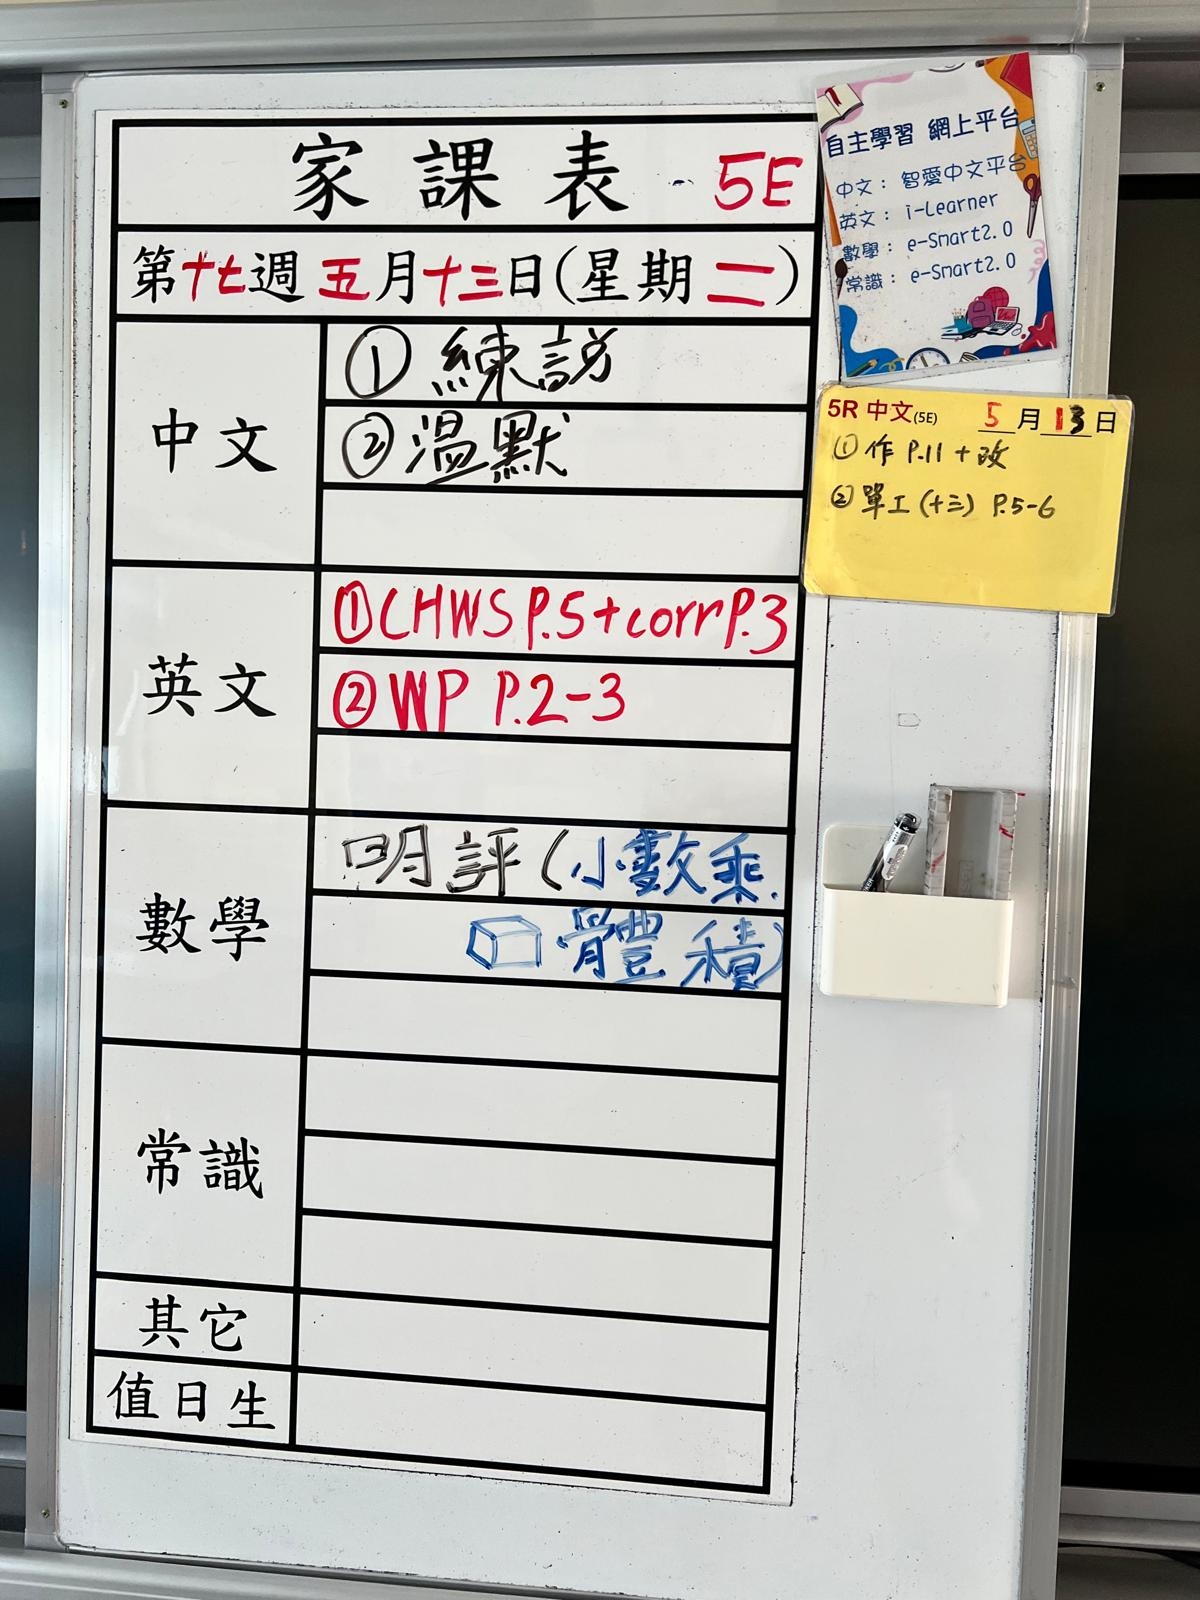 家課表 5E
第十七週 五月十三日(星期二)
中文
① 練說
② 溫默
英文
① CHWS P.5+corr P.3
② WP P.2-3
數學
明評(小數乘.
體積)
常識
其它
值日生
自主學習 網上平台
中文：智愛中文平台
英文：i-Learner
數學：e-Smart2.0
常識：e-Smart2.0
5R 中文(5E) 5月13日
① 作 P.11+改
② 單工(十三) P.5-6